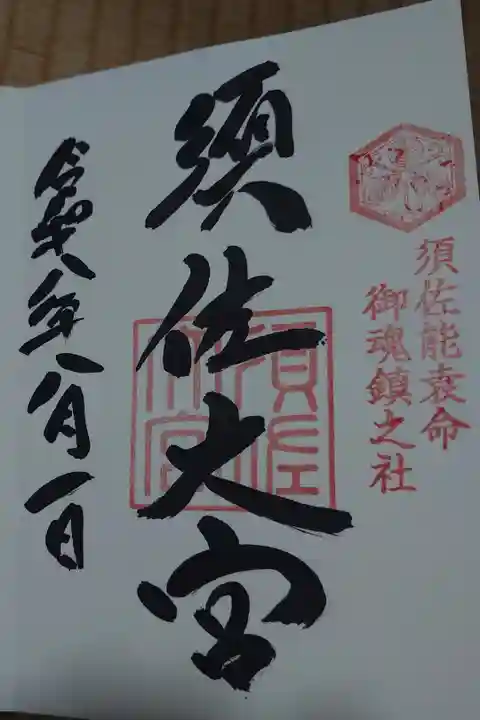 須佐能袁命
御魂鎮之社
須佐大宮
須佐大宮
令和八年八月一日